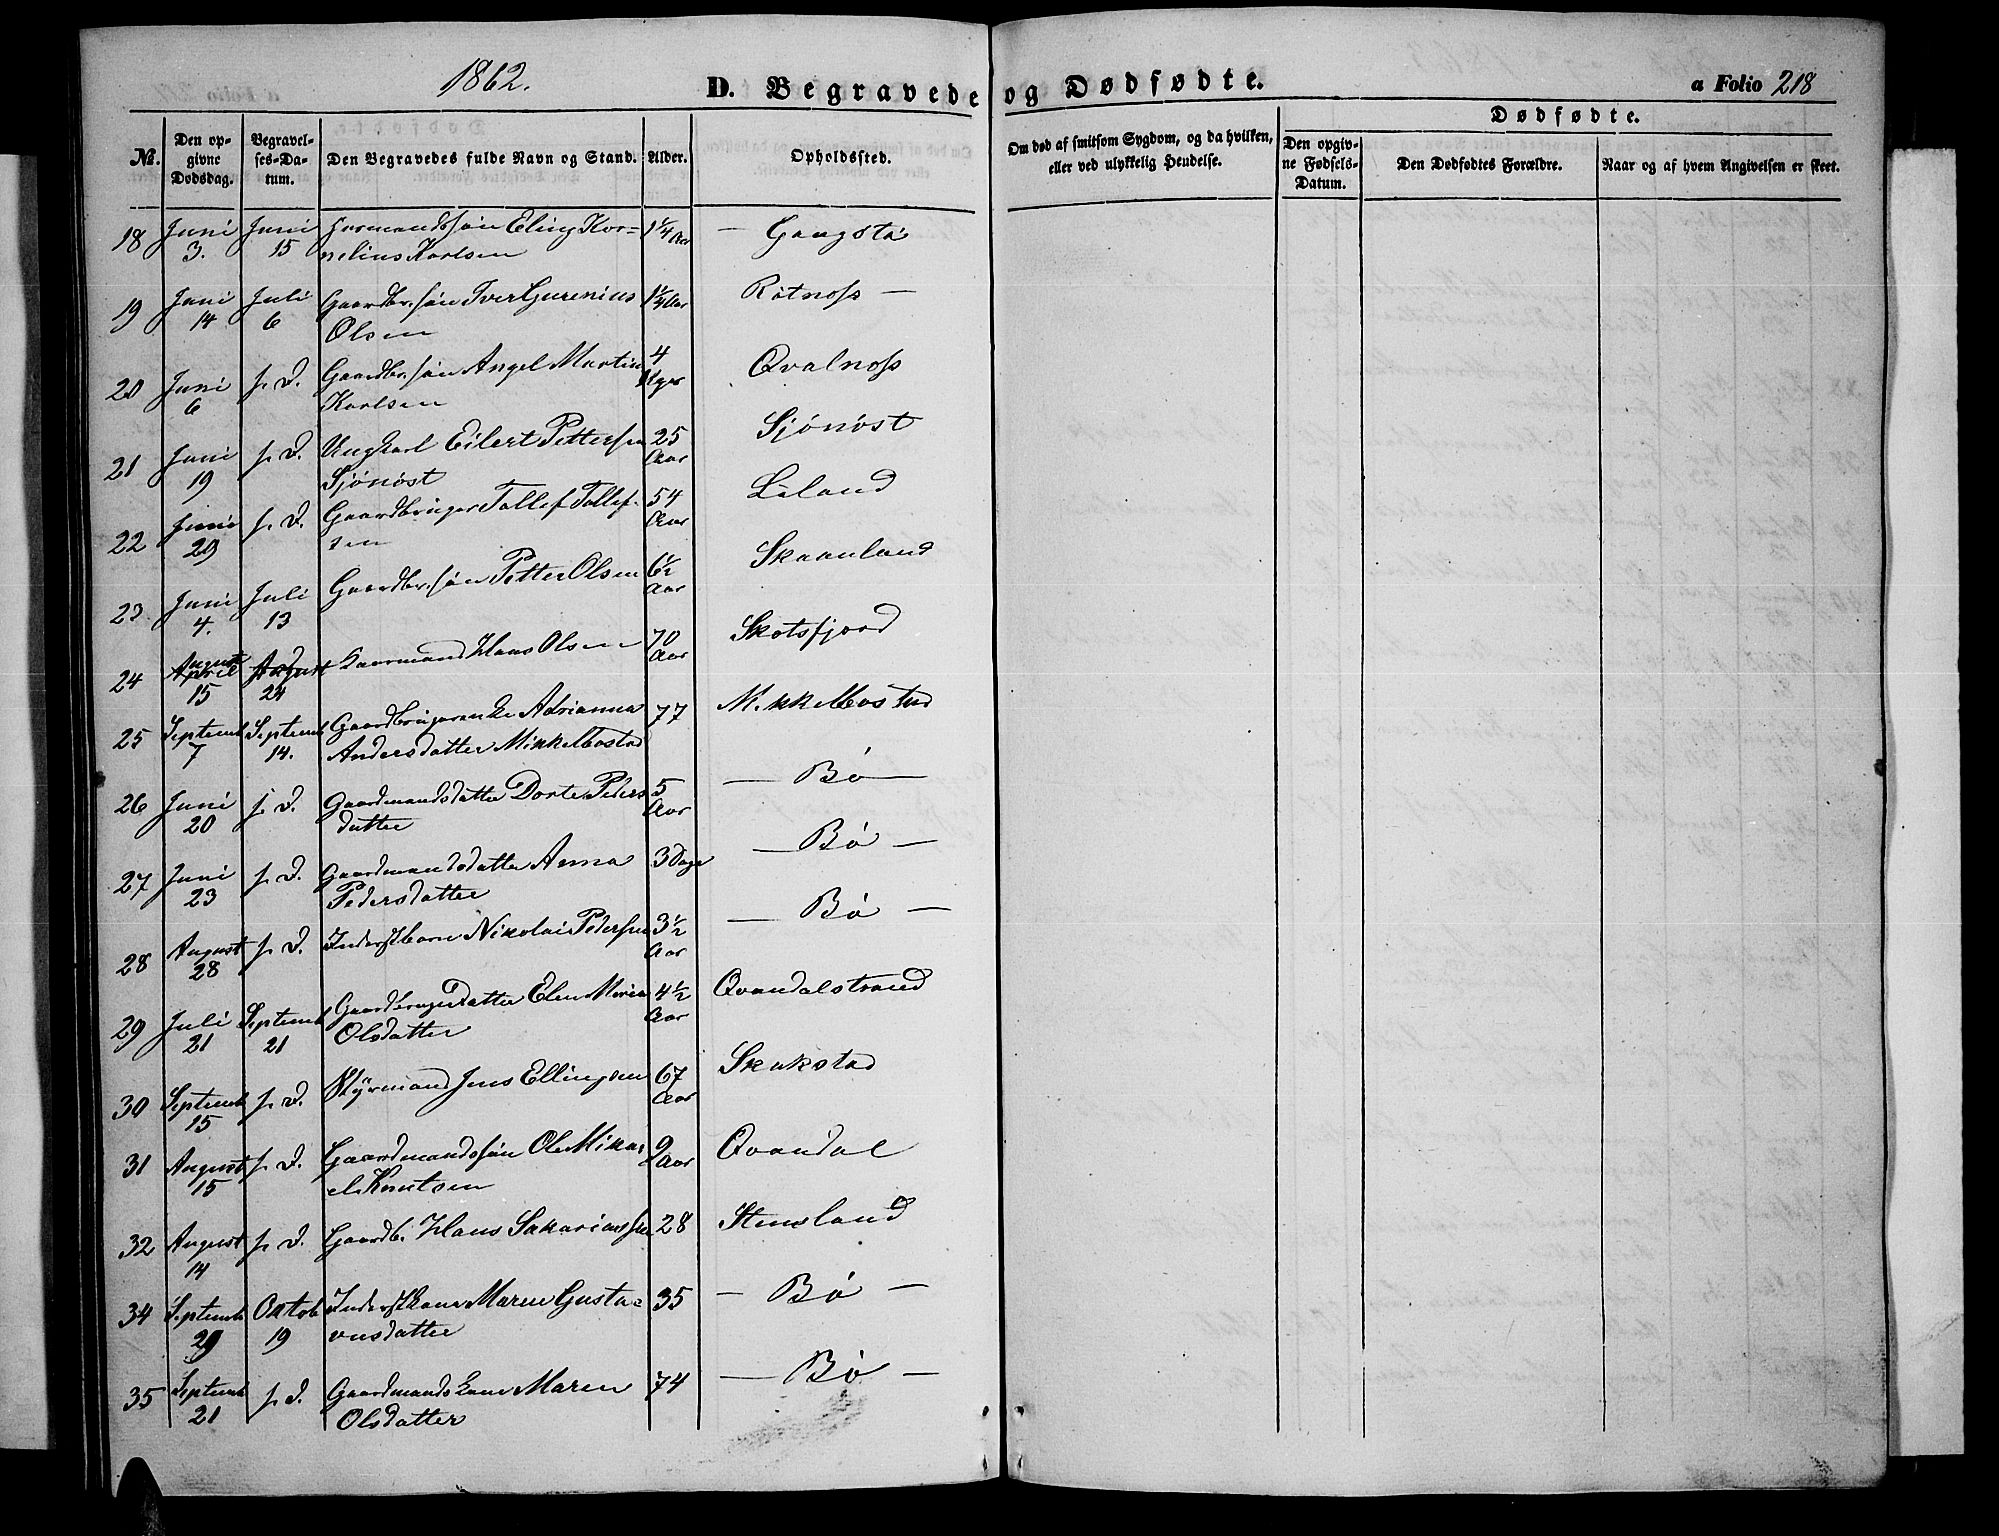 1862.
D. Begravede og Dødfødte.
a Folio 218
No.
Den opgivne Dødsdag.
Begravelses-Datum.
Den Begravedes fulde Navn og Stand.
Alder.
Opholdssted.
Om død af smitsom Sygdom, og da hvilken, eller ved ulykkelig Hendelse.
Dødfødte.
Den opgivne Fødsels-Datum.
Den Dødfødtes Forældre.
Naar og af hvem Angivelsen er skeet.
18 Juni 3. Juni 15 Eling Kor=
nelius Karlsen 1¼ Aar — Gangstø
19 Juni 14 Juli 6 Gaardbr.søn Iver Gurenius
Olsen 1¼ Aar Rotnoss —
20 Juni 6 s. D. Gaardbr.søn Angel Martin
Karlsen 4 Uger Qvalnoss
21 Juni 19 s. D. Ungkarl Eilert Pettersen
Sjønøst 25 Aar Sjønøst
22 Juni 29 s. D. Gaardbruger Tollef Tollef-
sen 54 Aar Liland
23 Juni 4. Juli 13 Gaardbr.søn Petter Olsen 6½ Aar Skaanland
24 August April 15 August 24 Hans Olsen 70 Aar Skotsfjord
25 Septemb 7 Septemb 14. Gaardbrugerenke Adrianna
Andersdatter Mikkelbostad 77 Mikkelbostad
26 Juni 20 s. D. Gaardmandsdatter Dorte Peders
datter 5 Aar — Bø —
27 Juni 23 s. D. Gaardmandsdatter Anna
Pedersdatter 3 Dage — Bø —
28 August 28 s. D. Inderstbarn Nikolai Pedersen 3½ Aar — Bø —
29 Juli 21 Septemb 21 Gaardbrugerdatter Elen Maria
Olsdatter 4½ Aar Qvandalstrand
30 Septemb 15 s. D. Styrmand Jens Ellingsen 67 Aar Skakstad
31 August 15 s. D. Gaardmandssøn Ole Mika
el Knutsen 9 Aar Qvandal
32 August 14 s. D. Gaardb. Hans Sakariassen 28 Stensland
34 Septemb 29 Oktob 19 Inderstkone Maren Gusta=
vusdatter 35 — Bø —
35 Septemb 21 s. D. Gaardmandskone Maren
Olsdatter 74 — Bø —